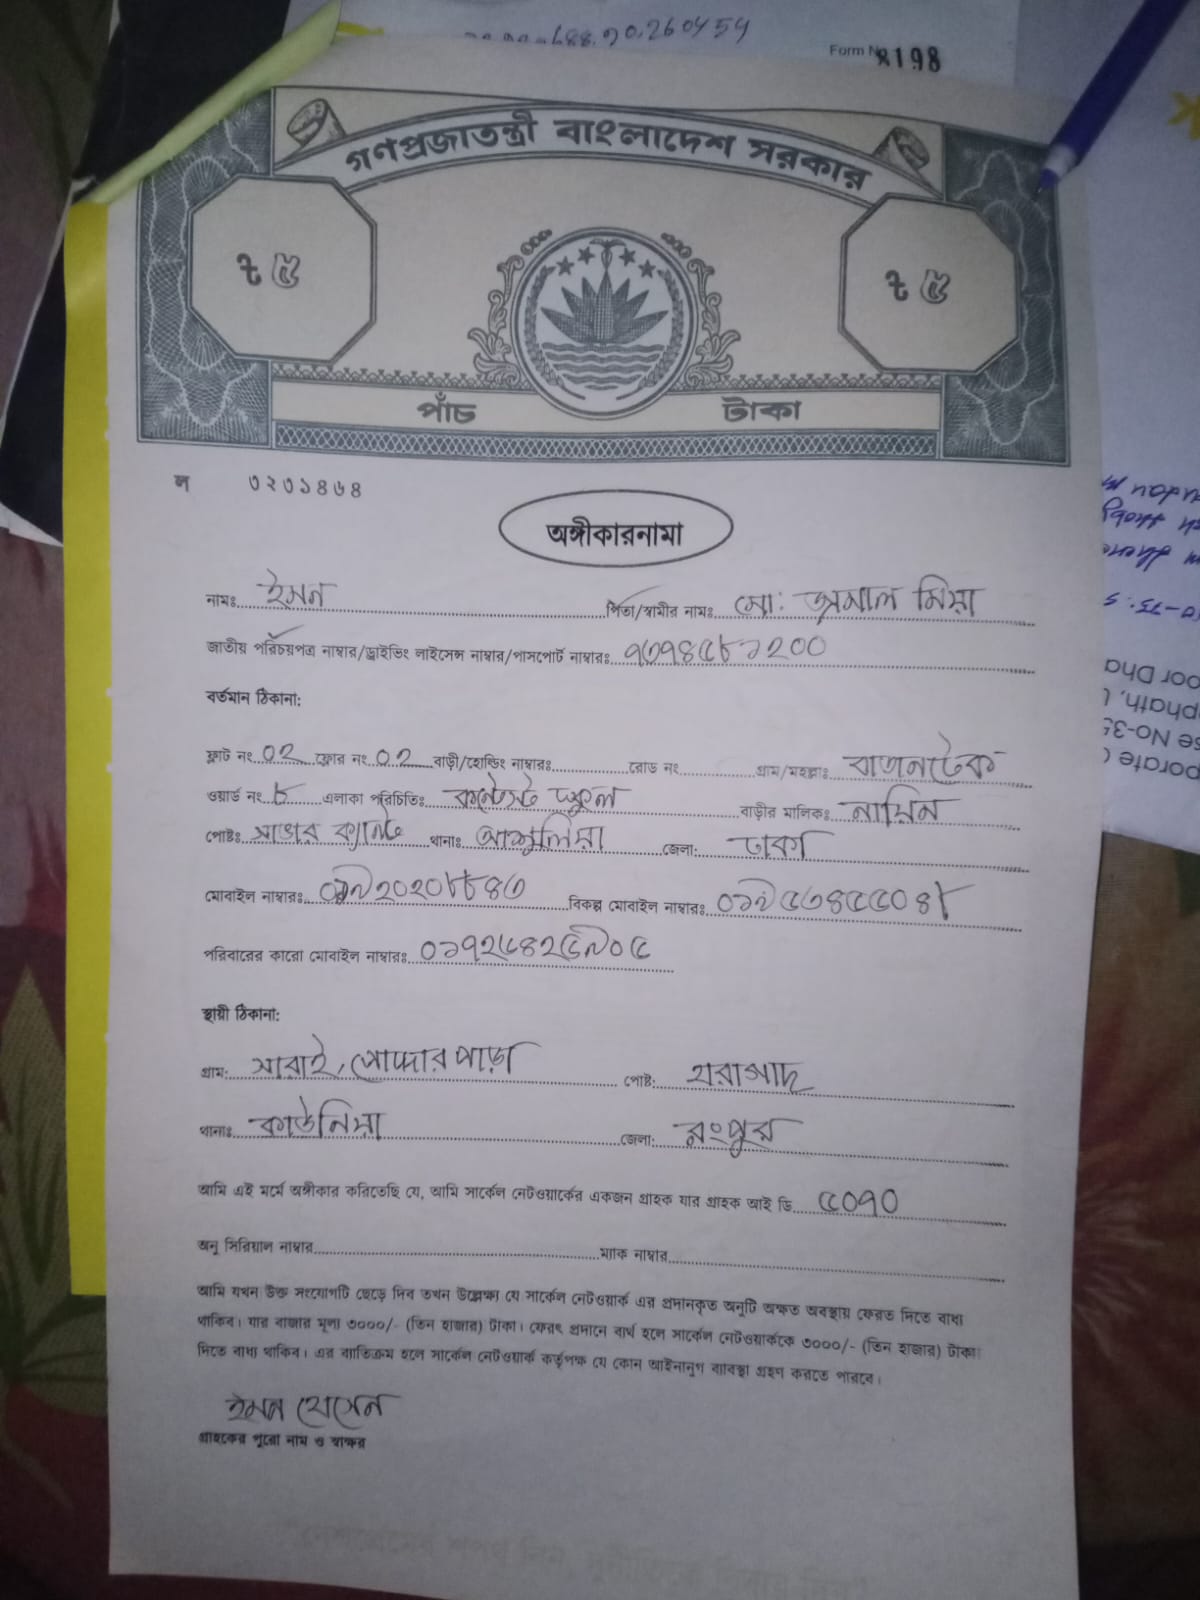 Form N 8198
গণপ্রজাতন্ত্রী বাংলাদেশ সরকার
৳ ৫ ৳ ৫
পাঁচ টাকা
ল ৩২৩১৪৬৪
অঙ্গীকারনামা
নামঃ ইমন পিতা/স্বামীর নাম: মো: জামাল মিয়া
জাতীয় পরিচয়পত্র নাম্বার/ড্রাইভিং লাইসেন্স নাম্বার/পাসপোর্ট নাম্বারঃ ৭৩৭৪৫৮১২০০
বর্তমান ঠিকানা:
ফ্লাট নং ০২ ফ্লোর নং ০২ বাড়ী/হোল্ডিং নাম্বারঃ রোড নং গ্রাম/মহল্লাঃ
ওয়ার্ড নং ৮ এলাকা পরিচিতিঃ স্কুল বাড়ীর মালিক:
পোষ্টঃ সাভার ক্যান্ট থানাঃ আশুলিয়া জেলা: ঢাকা
মোবাইল নাম্বারঃ বিকল্প মোবাইল নাম্বারঃ
পরিবারের কারো মোবাইল নাম্বারঃ
স্থায়ী ঠিকানা:
গ্রাম: সারাই, পোদ্দার পাড়া পোষ্ট: হারাগাছ
থানাঃ কাউনিয়া জেলা: রংপুর
আমি এই মর্মে অঙ্গীকার করিতেছি যে, আমি সার্কেল নেটওয়ার্কের একজন গ্রাহক যার গ্রাহক আই ডি ৫০৭০
অনু সিরিয়াল নাম্বার ম্যাক নাম্বার
আমি যখন উক্ত সংযোগটি ছেড়ে দিব তখন উল্লেক্ষ্য যে সার্কেল নেটওয়ার্ক এর প্রদানকৃত অনুটি অক্ষত অবস্থায় ফেরত দিতে বাধ্য
থাকিব। যার বাজার মূল্য ৩০০০/- (তিন হাজার) টাকা। ফেরৎ প্রদানে ব্যর্থ হলে সার্কেল নেটওয়ার্ককে ৩০০০/- (তিন হাজার) টাকা
দিতে বাধ্য থাকিব। এর ব্যতিক্রম হলে সার্কেল নেটওয়ার্ক কর্তৃপক্ষ যে কোন আইনানুগ ব্যবস্থা গ্রহণ করতে পারবে।
ইমন হোসেন
গ্রাহকের পুরো নাম ও স্বাক্ষর